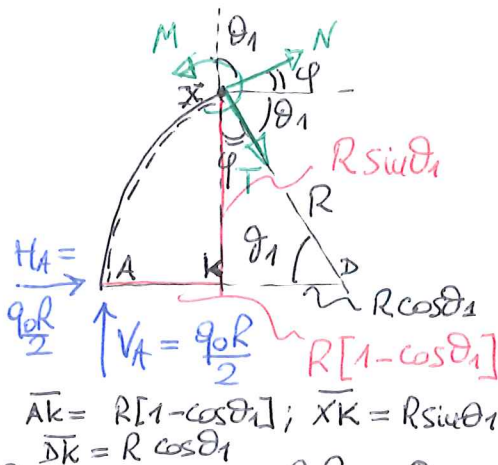 M θ1 N
X φ
θ1
φ
T R sinθ1
R
H_A = A K θ1 D
q0R/2 R cosθ1
V_A = q0R/2
R[1-cosθ1]
AK = R[1-cosθ1]; XK = R sinθ1
DK = R cosθ1